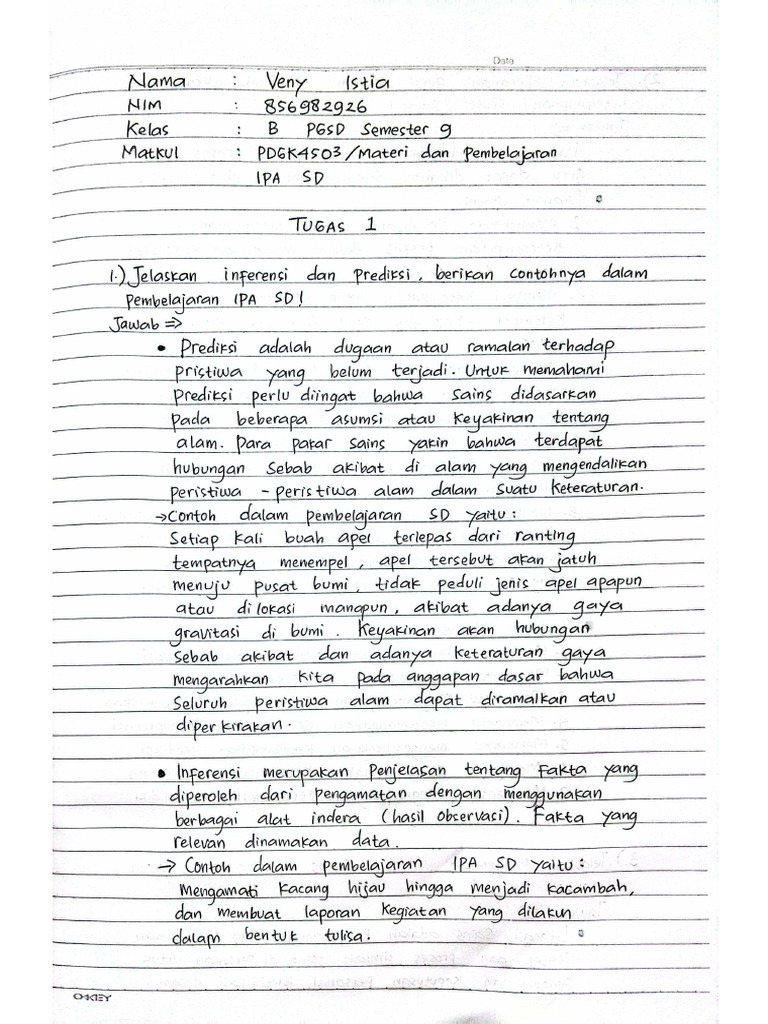 Date
Nama : Veny Istia
NIM : 856982926
Kelas : B PGSD Semester 9
Matkul : PDGK4503/Materi dan Pembelajaran
IPA SD
TUGAS 1
1.) Jelaskan inferensi dan Prediksi, berikan contohnya dalam
Pembelajaran IPA SD!
Jawab =>
• Prediksi adalah dugaan atau ramalan terhadap
pristiwa yang belum terjadi. Untuk memahami
Prediksi perlu diingat bahwa sains didasarkan
pada beberapa asumsi atau keyakinan tentang
alam. Para pakar sains yakin bahwa terdapat
hubungan sebab akibat di alam yang mengendalikan
peristiwa - peristiwa alam dalam suatu keteraturan.
→ Contoh dalam pembelajaran SD yaitu :
Setiap kali buah apel terlepas dari ranting
tempatnya menempel, apel tersebut akan jatuh
menuju pusat bumi, tidak peduli jenis apel apapun
atau di lokasi manapun, akibat adanya gaya
gravitasi di bumi. Keyakinan akan hubungan
sebab akibat dan adanya keteraturan gaya
mengarahkan kita pada anggapan dasar bahwa
Seluruh peristiwa alam dapat diramalkan atau
diperkirakan.
• Inferensi merupakan Penjelasan tentang Fakta yang
diperoleh dari pengamatan dengan menggunakan
berbagai alat indera (hasil observasi). Fakta yang
relevan dinamakan data.
→ Contoh dalam pembelajaran IPA SD yaitu :
Mengamati kacang hijau hingga menjadi kacambah,
dan membuat laporan kegiatan yang dilakun
dalam bentuk tulisa.
OKEY